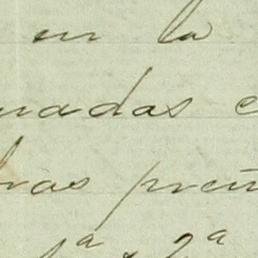 en la
nadas e
bras pren
1ª y 2ª